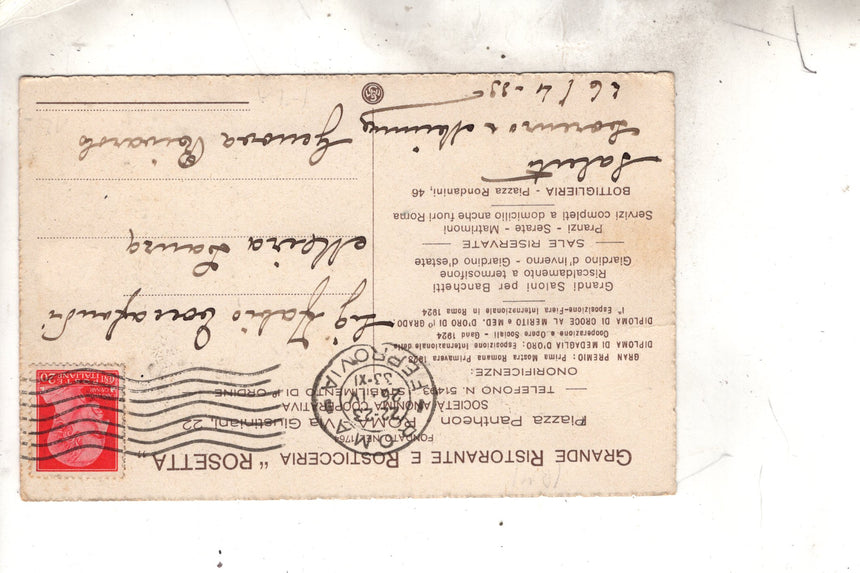 GRANDE RISTORANTE E ROSTICCERIA "ROSETTA"
FONDATO NEL 1764
Piazza Pantheon ROMA Via Giustiniani, 22
SOCIETÀ ANONIMA COOPERATIVA
TELEFONO N. 51493 STABILIMENTO DI 1° ORDINE
ONORIFICENZE:
GRAN PREMIO Prima Mostra Romana Primavera 1923
DIPLOMA DI MEDAGLIA D'ORO: Esposizione Internazionale della
Cooperazione e Opere Sociali - Gand 1924
DIPLOMA DI CROCE AL MERITO e MED. D'ORO DI 1° GRADO:
1ª Esposizione-Fiera Internazionale in Roma 1924
Grandi Saloni per Banchetti
Riscaldamento a termosifone
Giardino d'inverno - Giardino d'estate
SALE RISERVATE
Pranzi - Serate - Matrimoni
Servizi completi a domicilio anche fuori Roma
BOTTIGLIERIA - Piazza Rondanini, 46
Saluti
Lorenzo e
26/4-33
ROMA FERROVIA
22-23
26 IV
33·XI
POSTE ITALIANE
CENT. 20
Sig. Fabio
Laura
Genova Rivarolo